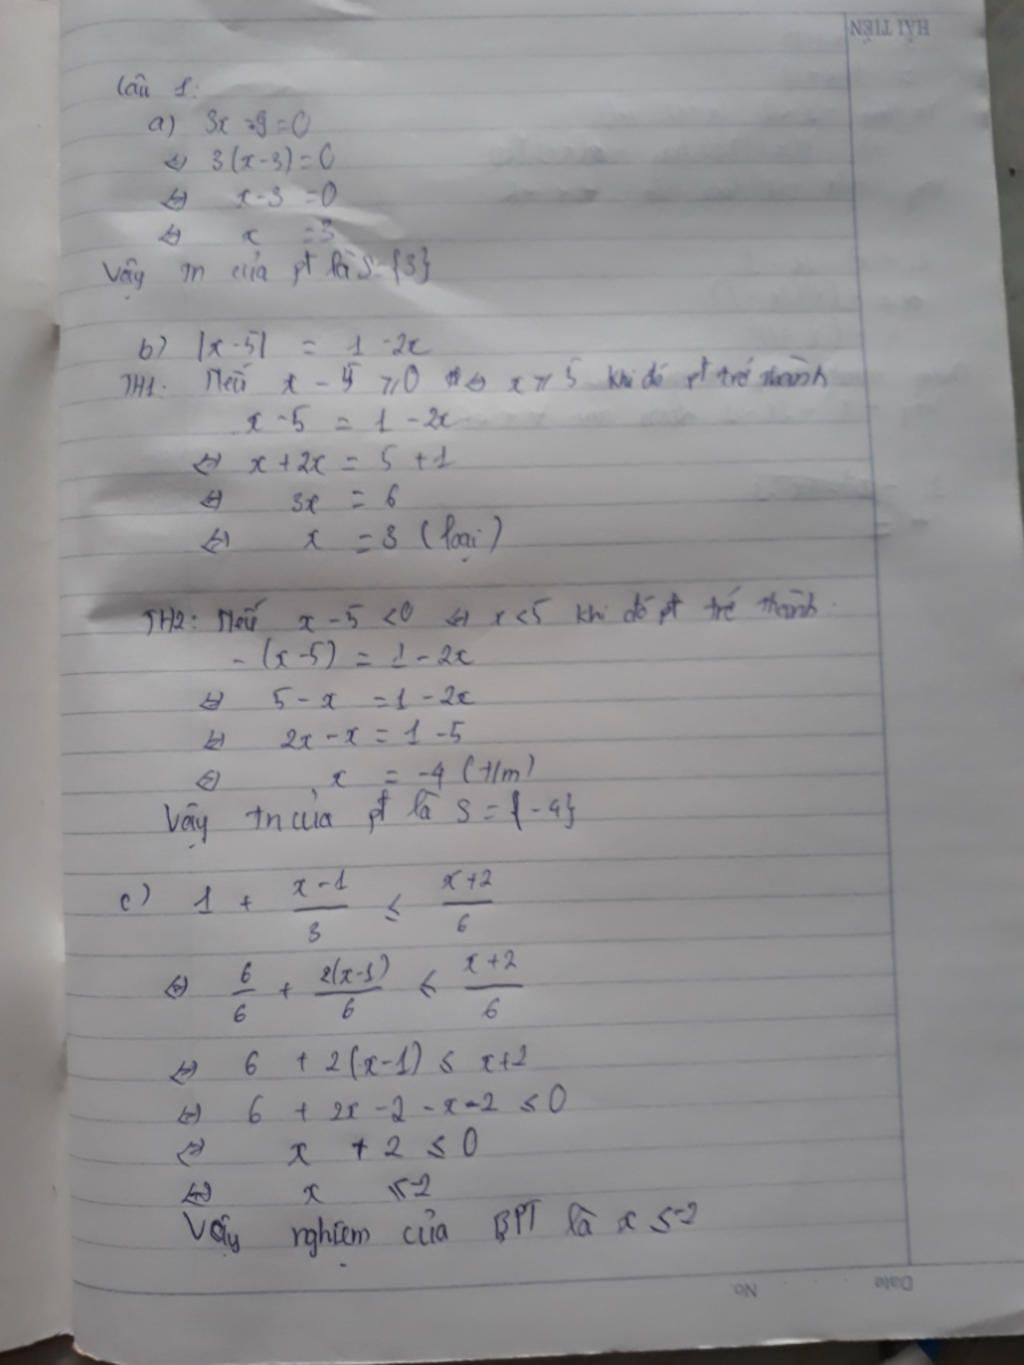 HẢI TIẾN
Câu 1:
a) 3x - 9 = 0
⇔ 3(x-3) = 0
⇔ x-3 = 0
⇔ x = 3
Vậy tn của pt là S = {3}
b) |x-5| = 1 - 2x
TH1: Nếu x - 5 ⩾ 0 ⇔ x ⩾ 5 khi đó pt trở thành
x - 5 = 1 - 2x
⇔ x + 2x = 5 + 1
⇔ 3x = 6
⇔ x = 3 (loại)
TH2: Nếu x - 5 < 0 ⇔ x < 5 khi đó pt trở thành
- (x-5) = 1 - 2x
⇔ 5 - x = 1 - 2x
⇔ 2x - x = 1 - 5
⇔ x = -4 (t/m)
Vậy tn của pt là S = {-4}
c) 1 + (x-1)/3 ≤ (x+2)/6
⇔ 6/6 + 2(x-1)/6 ≤ (x+2)/6
⇔ 6 + 2(x-1) ≤ x+2
⇔ 6 + 2x - 2 - x - 2 ≤ 0
⇔ x + 2 ≤ 0
⇔ x ≤ -2
Vậy nghiệm của BPT là x ≤ -2
No. Date